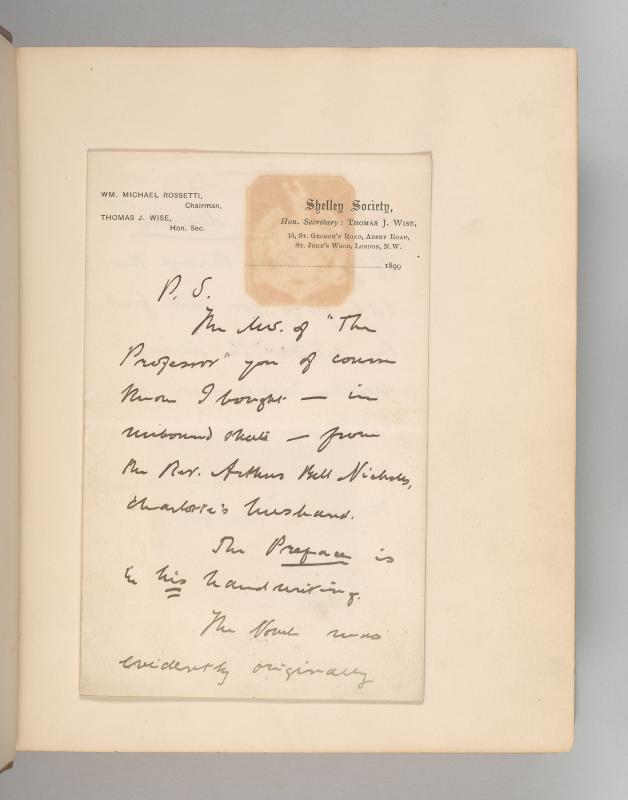 WM. MICHAEL ROSSETTI,
Chairman,
THOMAS J. WISE,
Hon. Sec.
Shelley Society,
Hon. Secretary: THOMAS J. WISE,
15, ST. GEORGE'S ROAD, ABBEY ROAD,
ST. JOHN'S WOOD, LONDON, N.W.
1899
P. S.
The MS. of "The
Professor" you of course
know I bought — in
unbound state — from
the Rev. Arthur Bell Nicholls,
Charlotte's husband.
The Preface is
in his handwriting.
The Novel was
evidently originally